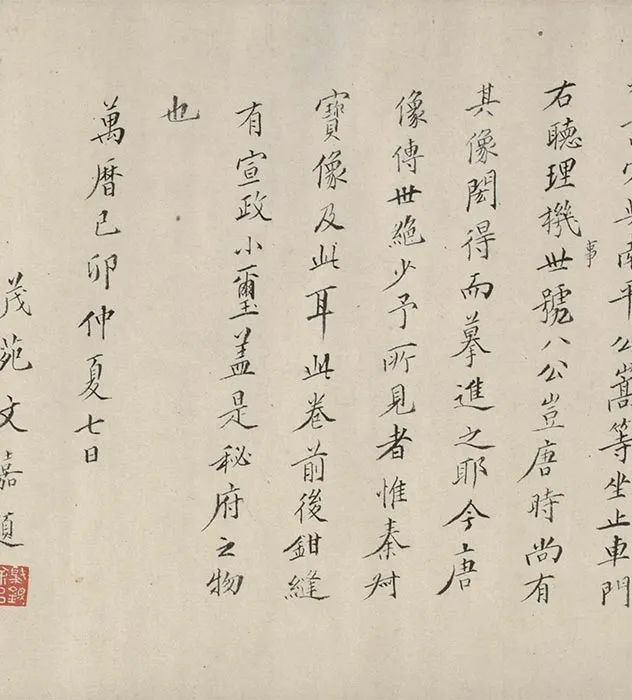 與南平公嵩等坐止車門
右聽理機事世號八公豈唐時尚有
其像閻得而摹進之耶今唐
像傳世絕少予所見者惟秦叔
寶像及此耳此卷前後鉗縫
有宣政小璽蓋是秘府之物
也
萬曆己卯仲夏七日
茂苑文嘉題